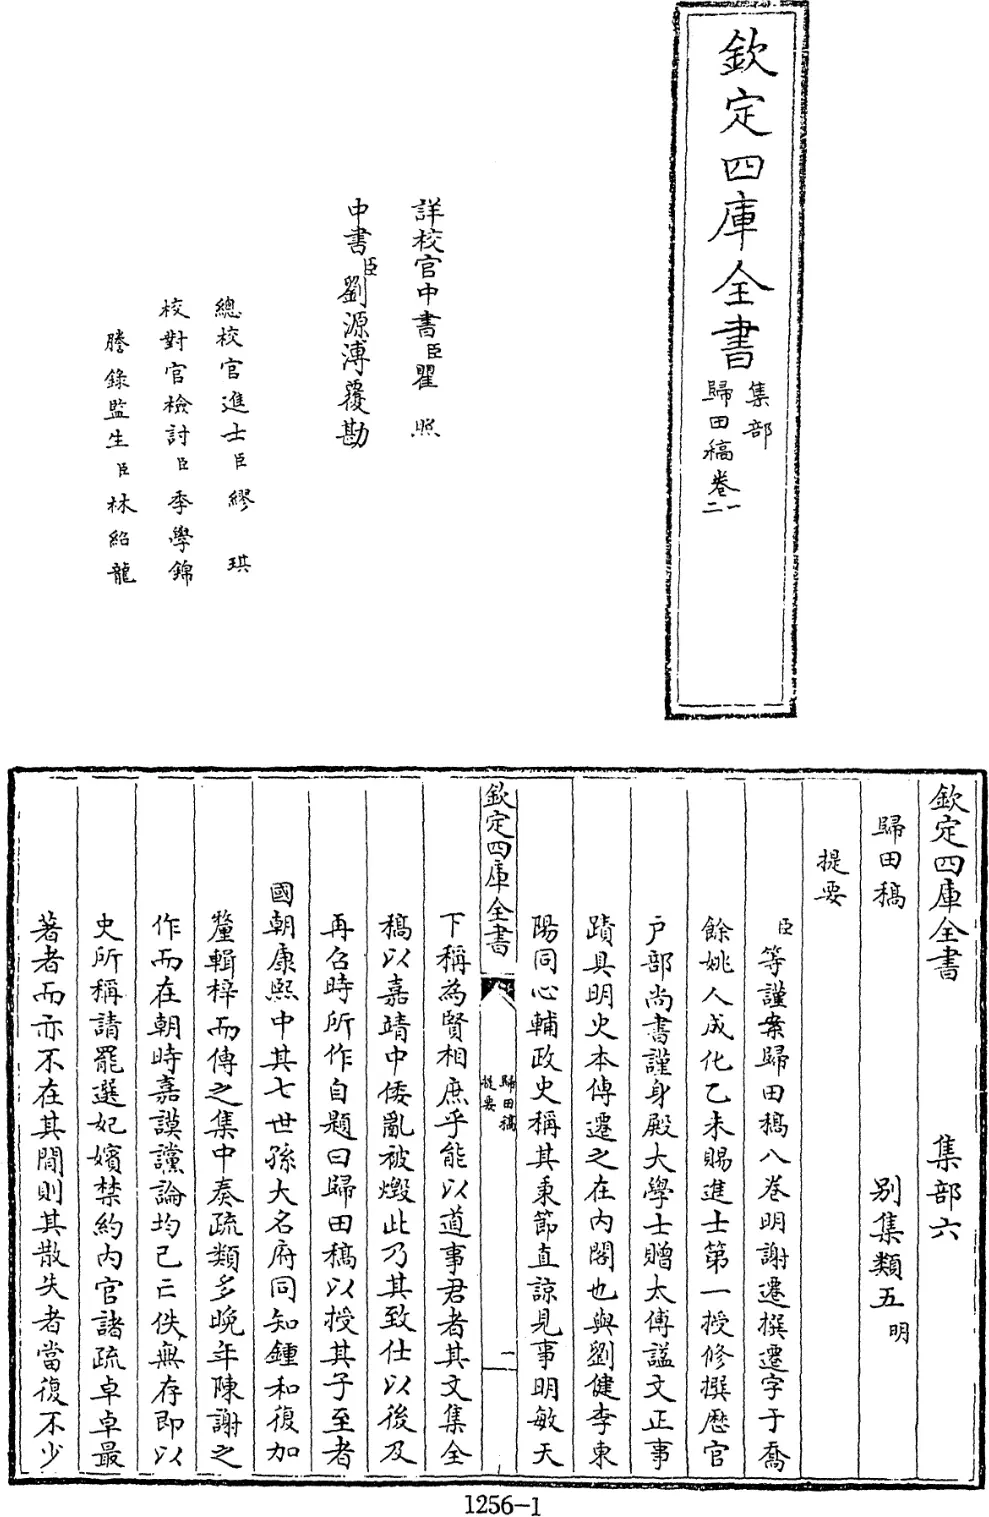 欽定四庫全書
集部
歸田稿卷一
二
詳校官中書臣瞿照
中書臣劉源溥覆勘
總校官進士臣繆琪
校對官檢討臣季學錦
謄錄監生臣林紹龍
欽定四庫全書 集部六
歸田稿 別集類五明
提要
臣等謹案歸田稿八卷明謝遷撰遷字于喬
餘姚人成化乙未賜進士第一授修撰歷官
戶部尚書謹身殿大學士贈太傅諡文正事
蹟具明史本傳遷之在內閣也與劉健李東
陽同心輔政史稱其秉節直諒見事明敏天
欽定四庫全書 歸田稿提要 一
下稱為賢相庶乎能以道事君者其文集全
稿以嘉靖中倭亂被燬此乃其致仕以後及
再召時所作自題曰歸田稿以授其子至者
國朝康熙中其七世孫大名府同知鍾和復加
釐輯梓而傳之集中奏疏類多晚年陳謝之
作而在朝時嘉謨讜論均已亡佚無存即以
史所稱請罷選妃嬪禁約內官諸疏卓卓最
著者而亦不在其間則其散失者當復不少
1256-1